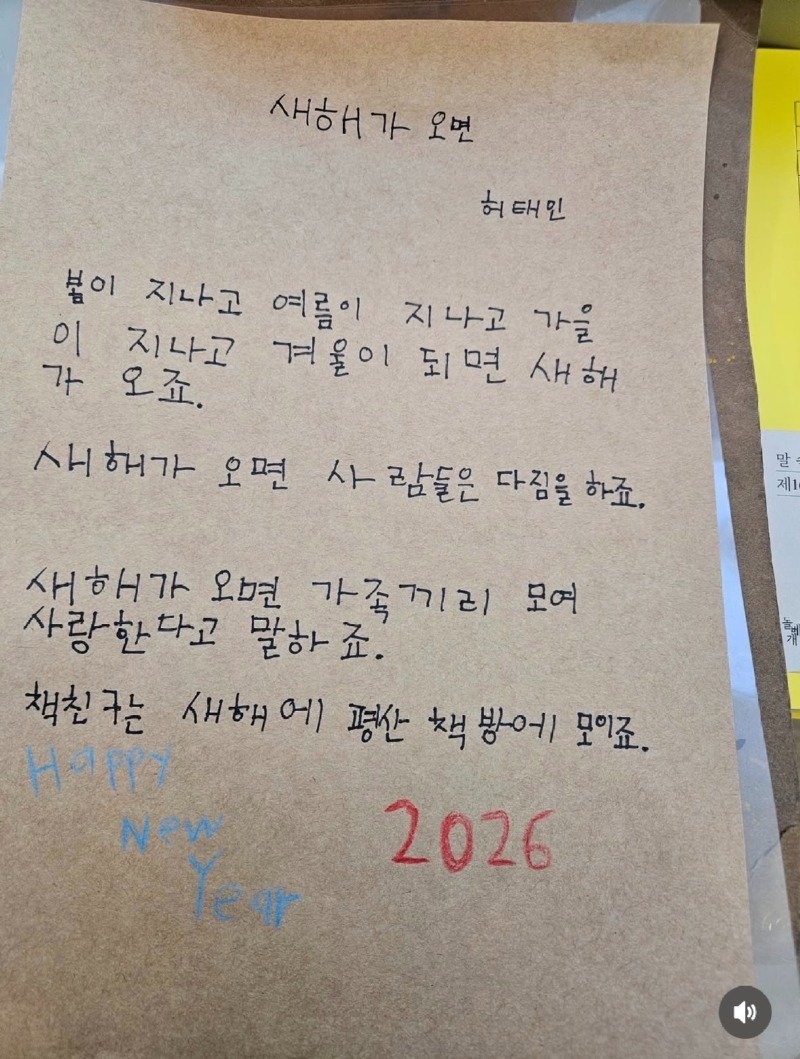 새해가 오면
허태인
봄이 지나고 여름이 지나고 가을
이 지나고 겨울이 되면 새해
가 오죠.
새해가 오면 사람들은 다짐을 하죠.
새해가 오면 가족끼리 모여
사랑한다고 말하죠.
책친구는 새해에 평산책방에 모이죠.
Happy
New
Year
2026
말
제1